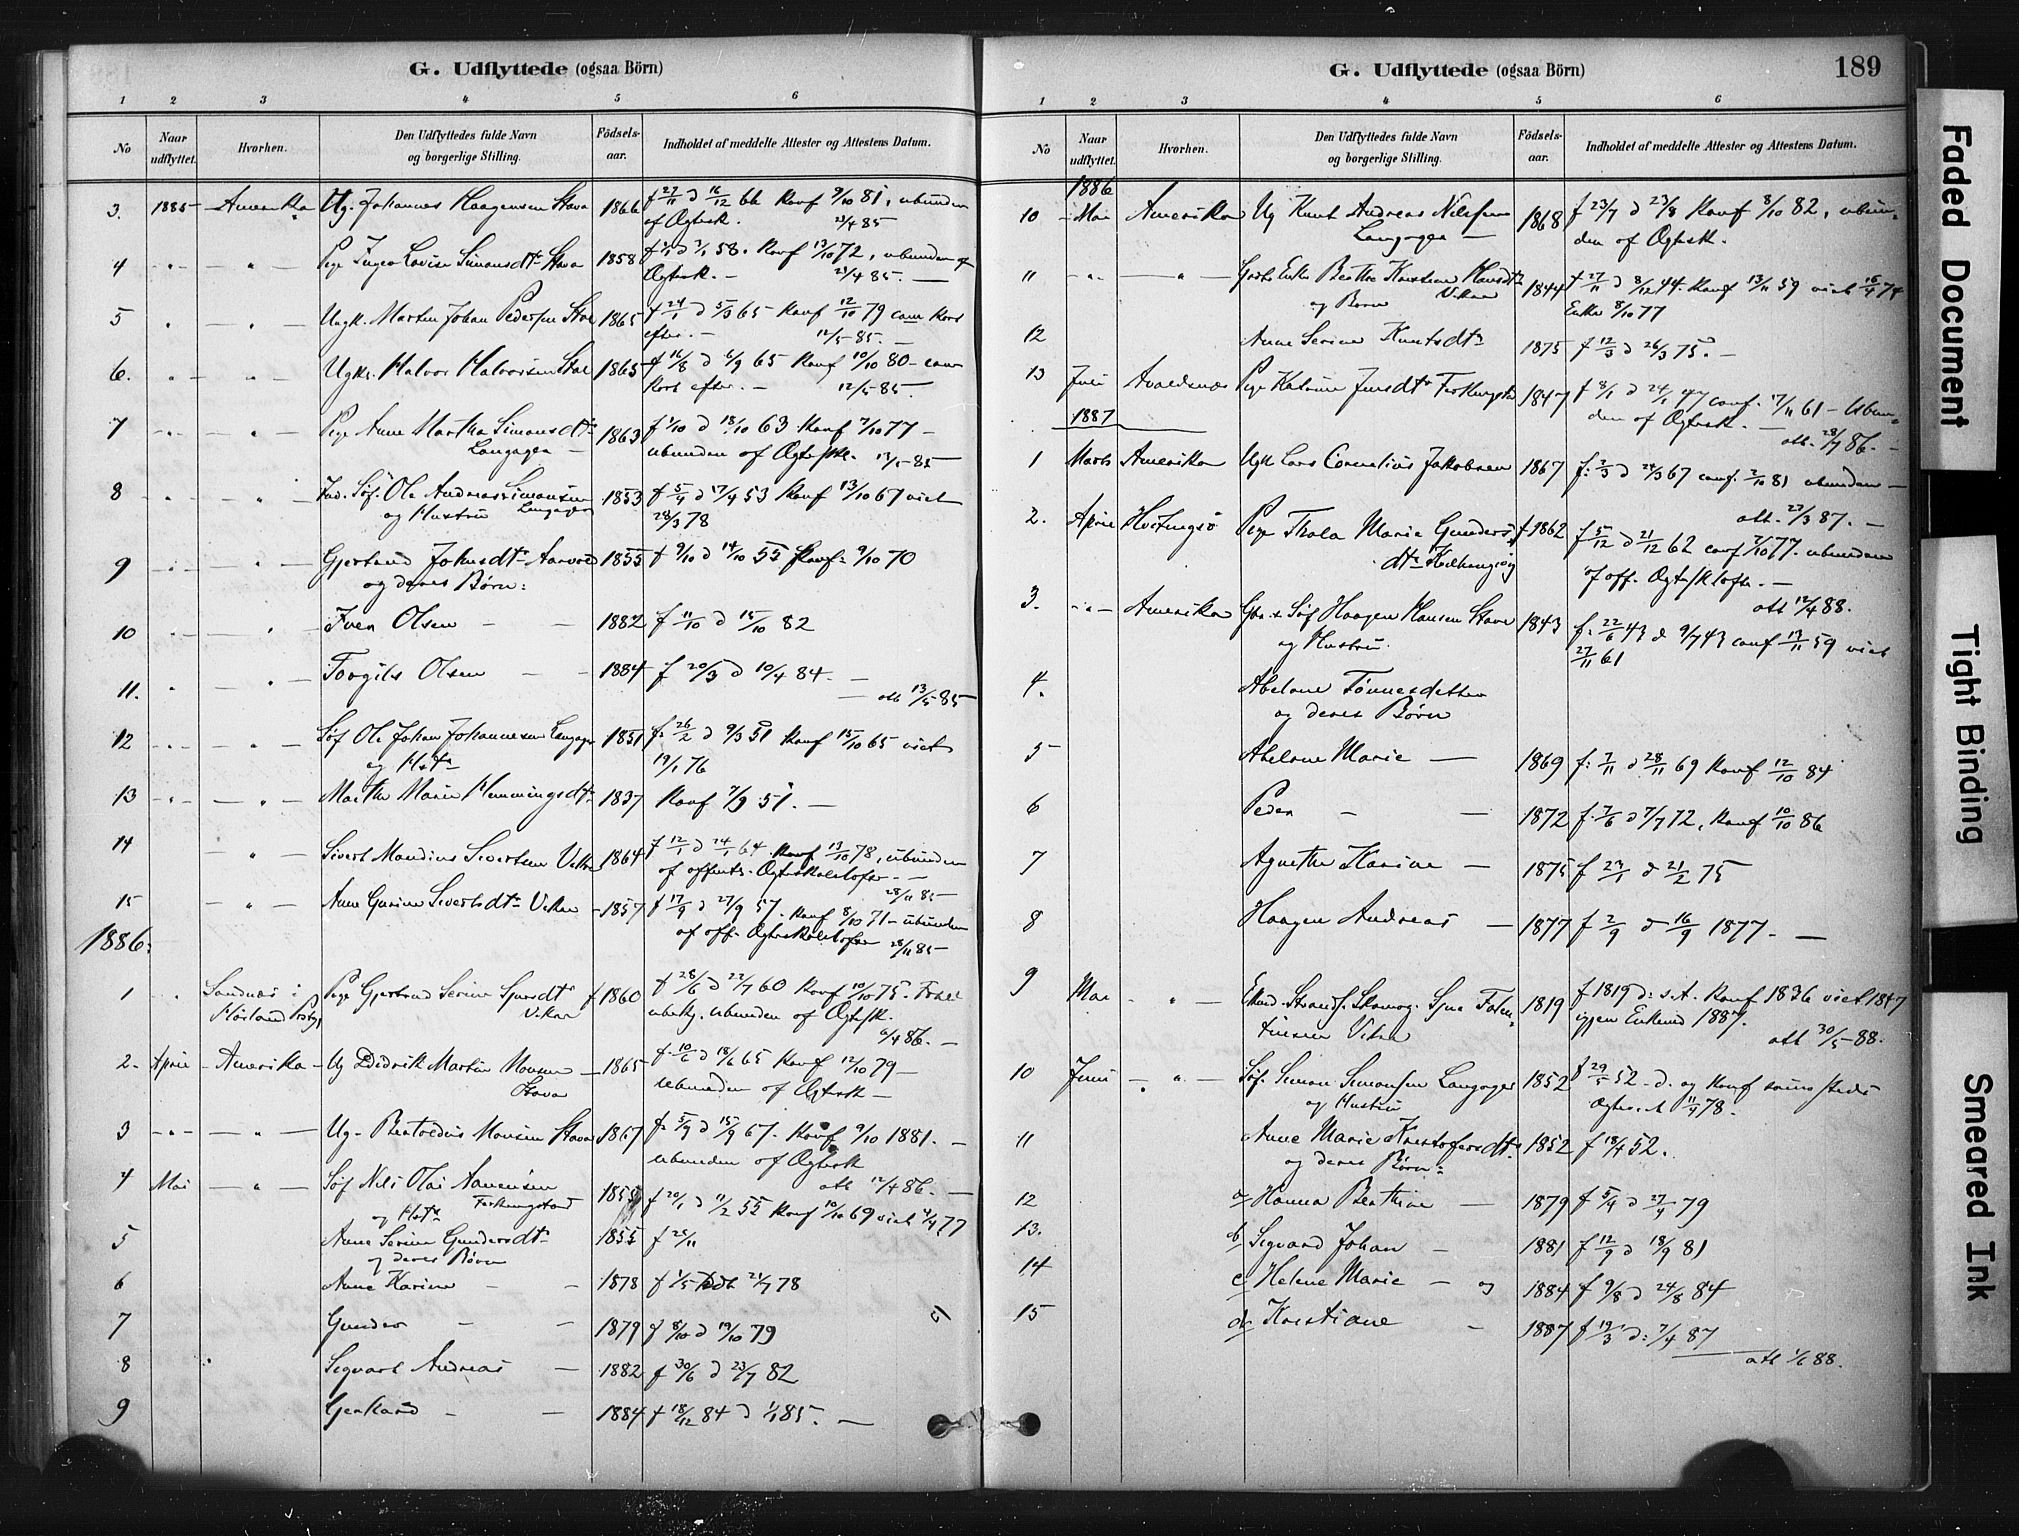 G. Udflyttede (ogsaa Börn)
1 2 3 4 5 6
No Naar udflyttet. Hvorhen. Den Udflyttedes fulde Navn og borgerlige Stilling. Födsels-aar. Indholdet af meddelte Attester og Attestens Datum.
3. 1885 Amerika Ug. Johannes Haagensen Stava 1866 f 27/11 d 16/12 66 Konf 9/10 81, ubunden
af Ægtesk. 23/4 85
4 Pige Inger Lovise Simonsdtr Stava 1858 58. Konf 13/10 72, ubunden af
Ægtesk. - 23/4 85. -
5 Ungk. Martin Johan Pedersen Stol 1865 f 24/1 d 5/3 65 Konf 12/10 79
efter. - 12/5 85. -
6. Ugk. Halvor Halvorsen Stol 1865 f 16/8 d 6/9 65 Konf 10/10 80 -
efter. - 12/5 85.
7 Pige Anne Martha Simonsdtr 1863 f 1/10 d 18/10 63 Konf 7/10 77 -
Langager - ubunden af Ægtesk. 13/5 85
8 Ind. Søf. Ole Andreas Simonsen 1853 f 5/4 d 17/4 53 Konf 13/10 67 viet
og Hustru Langager 28/3 78
9 Gjertrud Johnsdtr Aarvold 1855 f 9/10 d 14/10 55 Konf: 9/10 70
og deres Børn:
10 Iver Olsen - - 1882 f 11/10 d 15/10 82
11. Torgils Olsen - - 1884 f 20/3 d 10/4 84. -
att 13/5 85
12 Søf Ole Johan Johannesen Langager 1851 f. 26/2 d 9/3 51 Konf 15/10 65 viet
og Hstr 19/1 76
13 Marthe Marie Hemmingsdtr 1837 Konf 7/9 51. -
14 Sivert Mandius Sivertsen Vikra 1864 f 12/1 d 24/1 64. Konf 13/10 78, ubunden
af offentl. Ægteskabsløfter. -
28/11 85
15 Ane Gurine Sivertsdtr Vikra 1857 f 17/9 d 27/9 57. Konf 8/10 71 - ubunden
af off. Ægteskabsløfter 28/11 85
1886:
1 Sandnæs i Pige Gjertrud Serine Sjursdtr f 1860 f 28/6 d 22/7 60 Konf 10/10 75.
Vikra ubunden af Ægtesk.
6/4 86. -
2. April Amerika Ug Didrik Martin Monsen 1865 f. 10/6 d 18/6 65 Konf 12/10 79 -
Stava ubunden af Ægtesk -
3 Ug. Monsen Stava 1867 f. 5/9 d 15/9 67. Konf 9/10 1881. -
ubunden af Ægtesk
att 12/4 86. -
4 Mai Søf Nils Olai Aanensen 1855 f 20/1 d 11/2 55 Konf 10/10 69 viet 4/4 77
og Hstr Ferkingstad
5 Anne Serine Gundersdtr 1855 f 25/11
og deres Børn
6 Anne Karine - - 1878 f 1/5 dbt 21/7 78
7 Gunder - - 1879 f 8/10 d 19/10 79
8 Sigvart Andreas - 1882 f 30/6 d 23/7 82
9 Gerhard - - 1884 f 18/12 84 d 1/1 85. -
G. Udflyttede (ogsaa Börn) 189
1 2 3 4 5 6
No Naar udflyttet. Hvorhen. Den Udflyttedes fulde Navn og borgerlige Stilling. Födsels-aar. Indholdet af meddelte Attester og Attestens Datum.
1886
10 Mai Amerika Ug Knut Andreas Nilssen 1868 f 23/7 d 23/8 Konf 8/10 82, ubun-
Langager - den af Ægtesk.
11 Enke Berthe Karstine Hansdtr 1844 f 27/11 d 8/12 44. Konf 13/11 59 viet 16/4 74
og Børn Vikra Enke 8/10 77
12 Anne Serine Knutsdtr 1875 f 12/3 d 26/3 75. -
13 Juli Avaldsnæs Pige Katrine Jensdtr Ferkingstad 1847 f 8/1 d 24/1 47 conf. 17/11 61 - Ubun-
den af Ægtesk. -
att. 28/7 86. -
1887
1 Marts Amerika Ugk Lars Cornelius Jakobsen 1867 f: 2/3 d 24/3 67 conf. 2/10 81 ubunden -
att. 23/3 87. -
2. April Hvitingsö Pige Thala Marie Gunders- f 1862 f 5/12 d 21/12 62 conf 7/10 77. ubunden
dtr af off. Ægteskløfte. -
att 12/4 88.
3. Amerika Gbr. & Søf Haagen Hansen Stava 1843 f: 22/6 43 d 9/7 43 conf 13/11 59 viet
og Hustru. 27/11 61
4. Abelone Tønnesdatter
og deres Børn
5 Abelone Marie - 1869 f: 7/11 d 28/11 69 Konf 12/10 84
6 Peder - - 1872 f. 7/6 d 7/7 72, Konf 10/10 86
7 Agnethe Karine - 1875 f 23/1 d 21/2 75
8 Haagen Andreas - 1877 f 2/9 d 16/9 1877. -
9 Mai Enkmd. Sjur Falen- 1819 f 1819 d: s.A. Konf 1836 viet 1847
tinsen Vikra igjen Enkemd 1887.
att 30/5 88.
10 Juni Søf. Simon Simonsen Langager 1852 f 29/5 52 - d. og Konf samme steds
og Hustru Ægtev. 11/4 78.
11 Anne Marie Kristofersdtr 1852 f 18/4 52.
og deres Børn:
12 a/ Hanna Berthine - 1879 f 5/4 d 27/4 79
13. b/ Sigvard Johan - 1881 f 12/9 d 18/9 81
14 c/ Helene Marie - og 1884 f 9/8 d 24/8 84
15 d/ Kristiane - 1887 f 19/3 d: 7/4 87
att 1/6 88.
Faded Document
Tight Binding
Smeared Ink